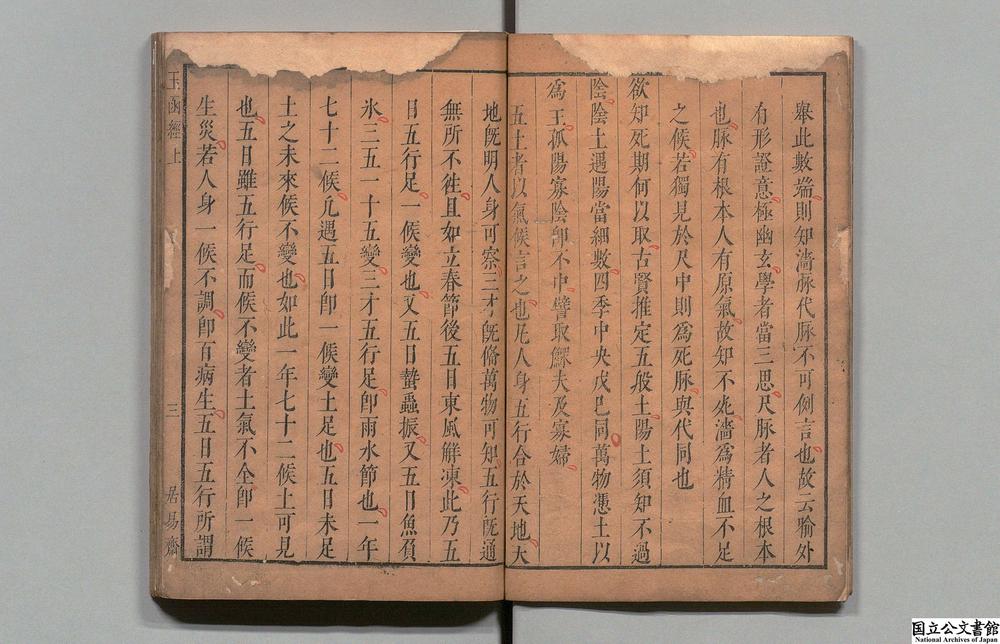 舉此數端則知濇脉代脉不可例言也故云喻外
有形證意極幽玄學者當三思尺脉者人之根本
也脉有根本人有原氣故知不死濇爲精血不足
之候若獨見於尺中則爲死脉與代同也
欲知死期何以取古賢推定五般土陽土須知不過
陰陰土遇陽當細數四季中央戊巳同萬物憑土以
爲王孤陽寡陰卽不中譬取鰥夫及寡婦
五土者以氣候言之也凡人身五行合於天地天
地既明人身可察三才既俻萬物可知五行既通
無所不徃且如立春節後五日東風解凍此乃五
日五行足一候變也又五日蟄蟲振又五日魚負
氷三五一十五變三才五行足卽雨水節也一年
七十二候凢遇五日卽一候變土足也五日未足
土之未來候不變也如此一年七十二候土可見
也五日雖五行足而候不變者土氣不全卽一候
生災若人身一候不調卽百病生五日五行所謂
玉函經上
三
居易齋
国立公文書館
National Archives of Japan